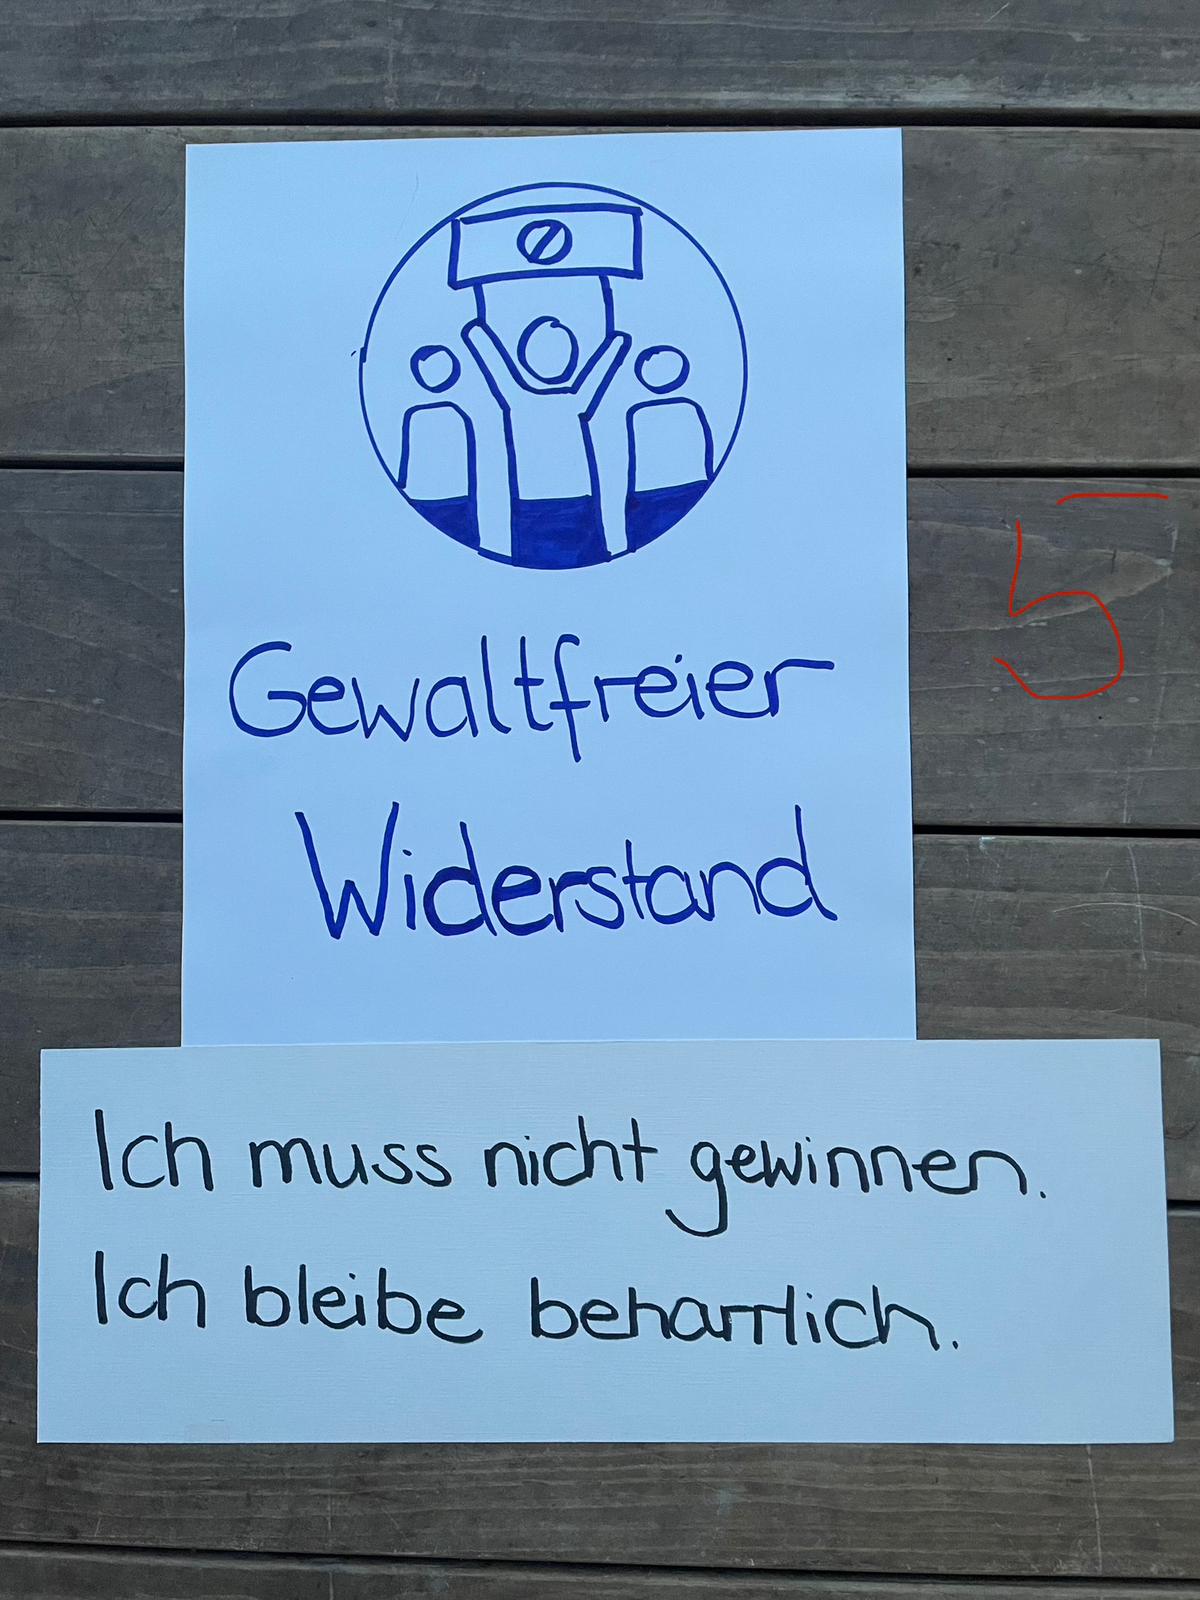 Gewaltfreier
5
Widerstand
Ich muss nicht gewinnen.
Ich bleibe beharrlich.